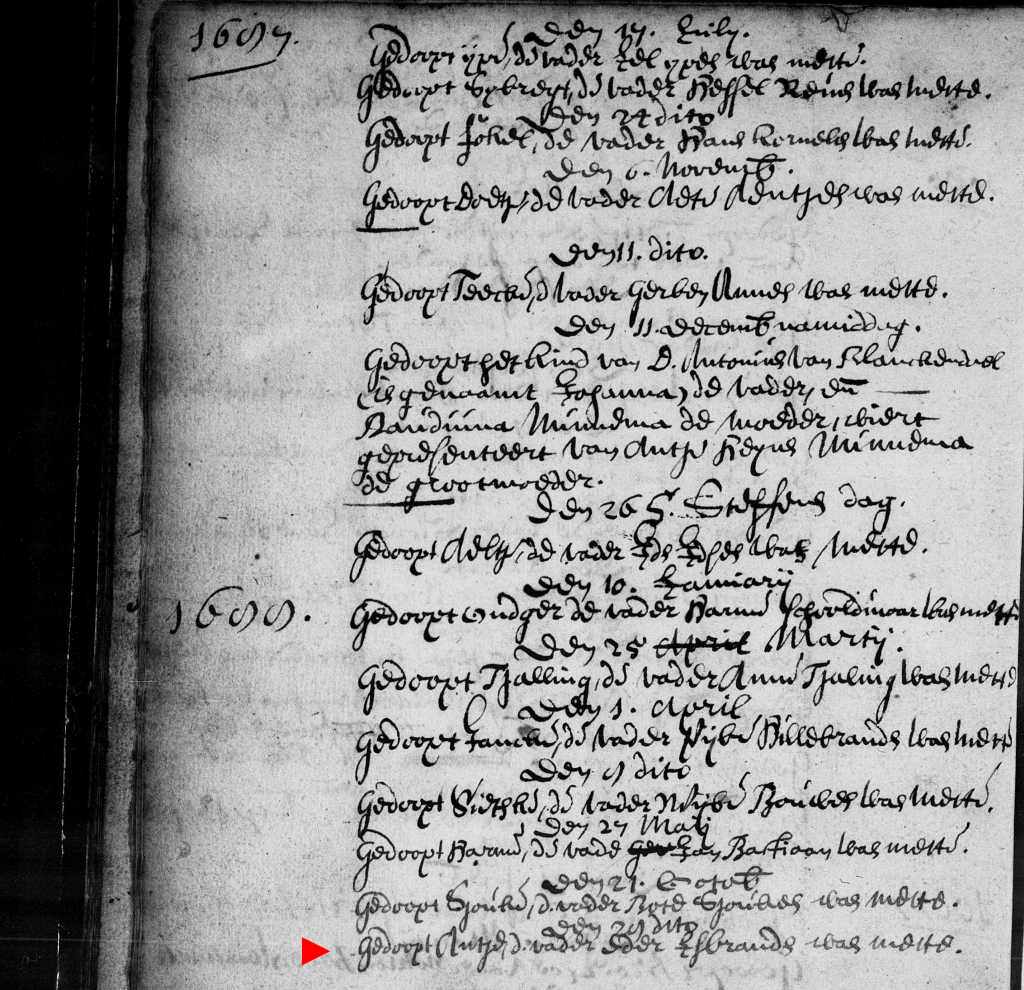 1687. Den 17. July.
Gedoopt ype, de vader Jel ypes was mette.
Gedoopt Sybregt, de vader Hessel was mette.
Den 24 dito
Gedoopt Jokel, de vader Hans Kornelis was mette.
Den 6. Novemb.
Gedoopt Doetje, de vader Aete was mette.
Den 11. dito.
Gedoopt Teecke, d vader Gerben Annes was mette.
Den 11. decemb namiddag.
Gedoopt het kind van D. Antonius van
(is genaamt Johanna) de vader, en
Minnema de moeder, wiert
gepresenteert van Antje Minnema
de grootmoeder.
Den 26 S. Steffens dag.
Gedoopt Aeltje, de vader was mette.
Den 10. January
1688. Gedoopt de vader Harme was mette
Den 25 April Martij.
Gedoopt Tjalling, de vader Anne Tjaling was mette
Den 1. April
Gedoopt Jancke, de vader Pijbe Hillebrands was mette
Den 9 dito
Gedoopt Sietske, de vader Wijbe Bouwes was mette.
Den 27 Maij
Gedoopt Harme, de vade Jan Bastiaan was mette.
Den 21. Octob
Gedoopt Sjouke, d. vader Bote Sjoukes was mette.
Den 29 dito
Gedoopt Antje, d. vader Eder IJsbrands was mette.